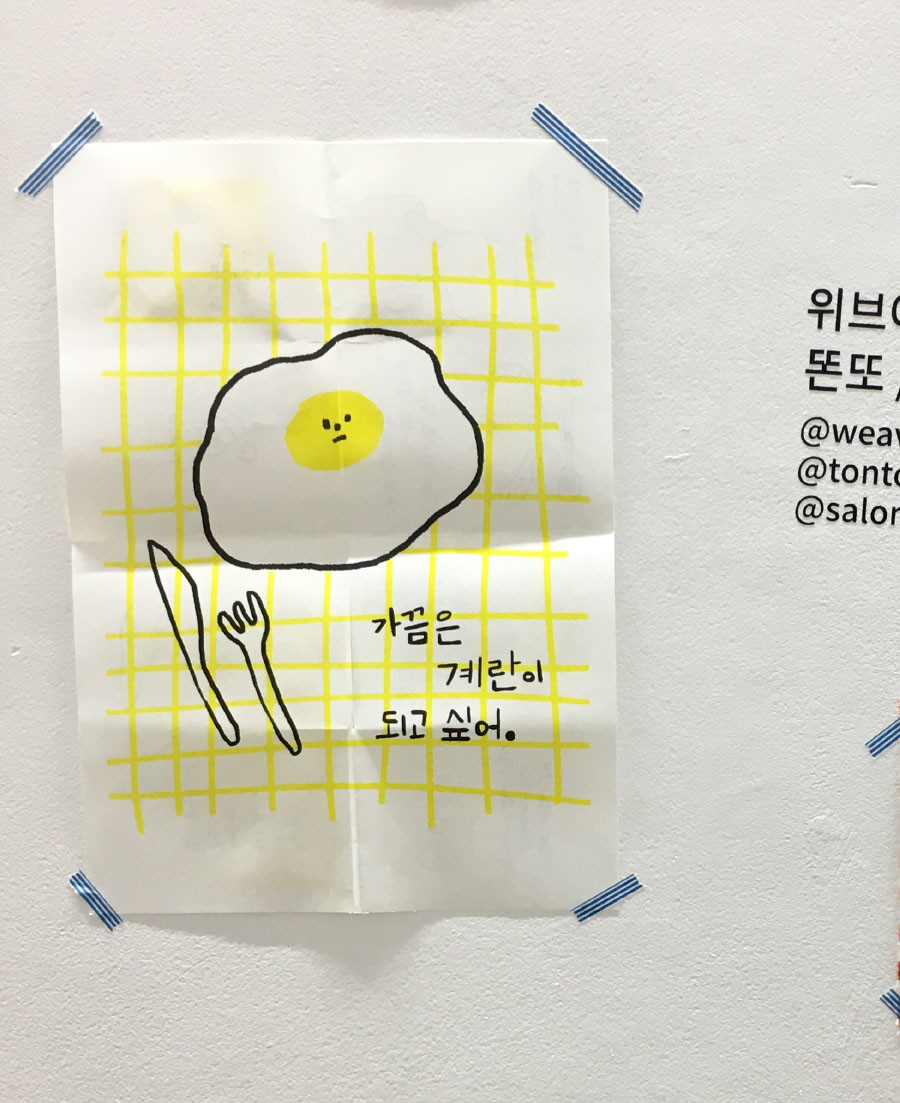 가끔은
계란이
되고 싶어.
위브
똔또 /
@weav
@tonto
@salon